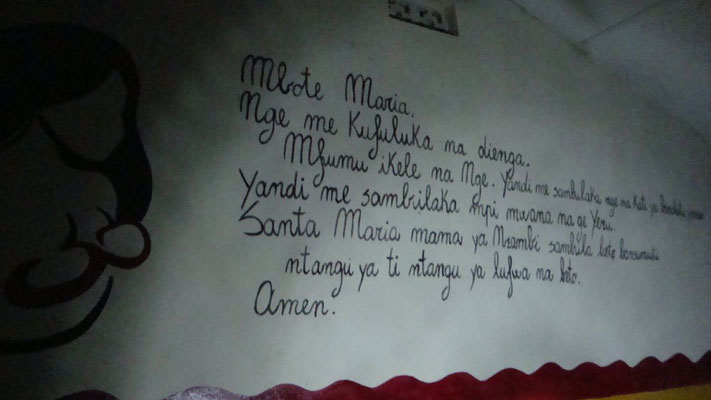 Mbote Maria.
Nge me Kufuluka na dienga.
Mfumu ikele na Nge. Yandi me sambulaka nge na Kati ya
Yandi me sambulaka mpi mwana na ge Yezu.
Santa Maria mama ya Nzambi sambila beto bansumuki
ntangu yai ti ntangu ya lufwa na beto.
Amen.